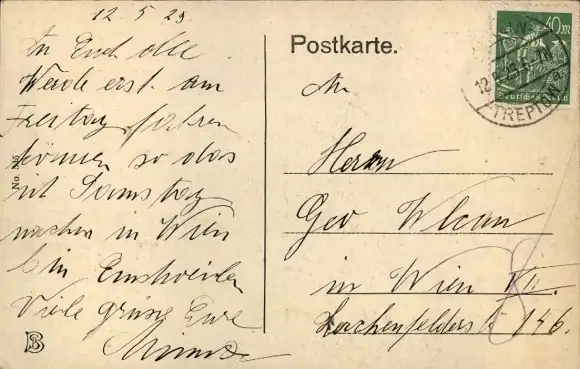 12 5 23
An Euch alle
Werde erst am
Freitag fahren
können so das
ich Samstag
nachm in Wien
bin Einstweilen
Viele grüsse Eure
No. 215
Postkarte.
An
Herrn
Geo
in Wien VII.
Lerchenfelderstr 146.
40 M
Deutsches Reich
BERLIN
12.5.23
TREPTOW
8
B